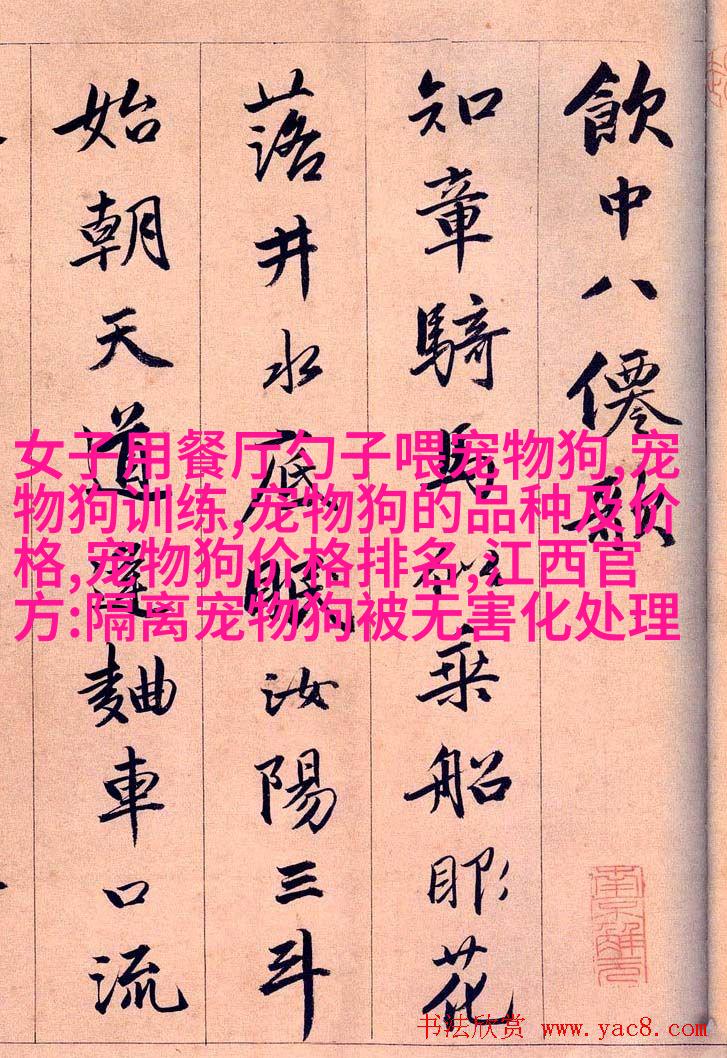 飲中八僊歌
知章騎馬似乗船眼花
落井水底眠汝陽三斗
始朝天道逢麹車口流
女子用餐厅勺子喂宠物狗,宠
物狗训练,宠物狗的品种及价
格,宠物狗价格排名,江西官
方:隔离宠物狗被无害化处理
南京解元
书法欣赏 www.yac8.com